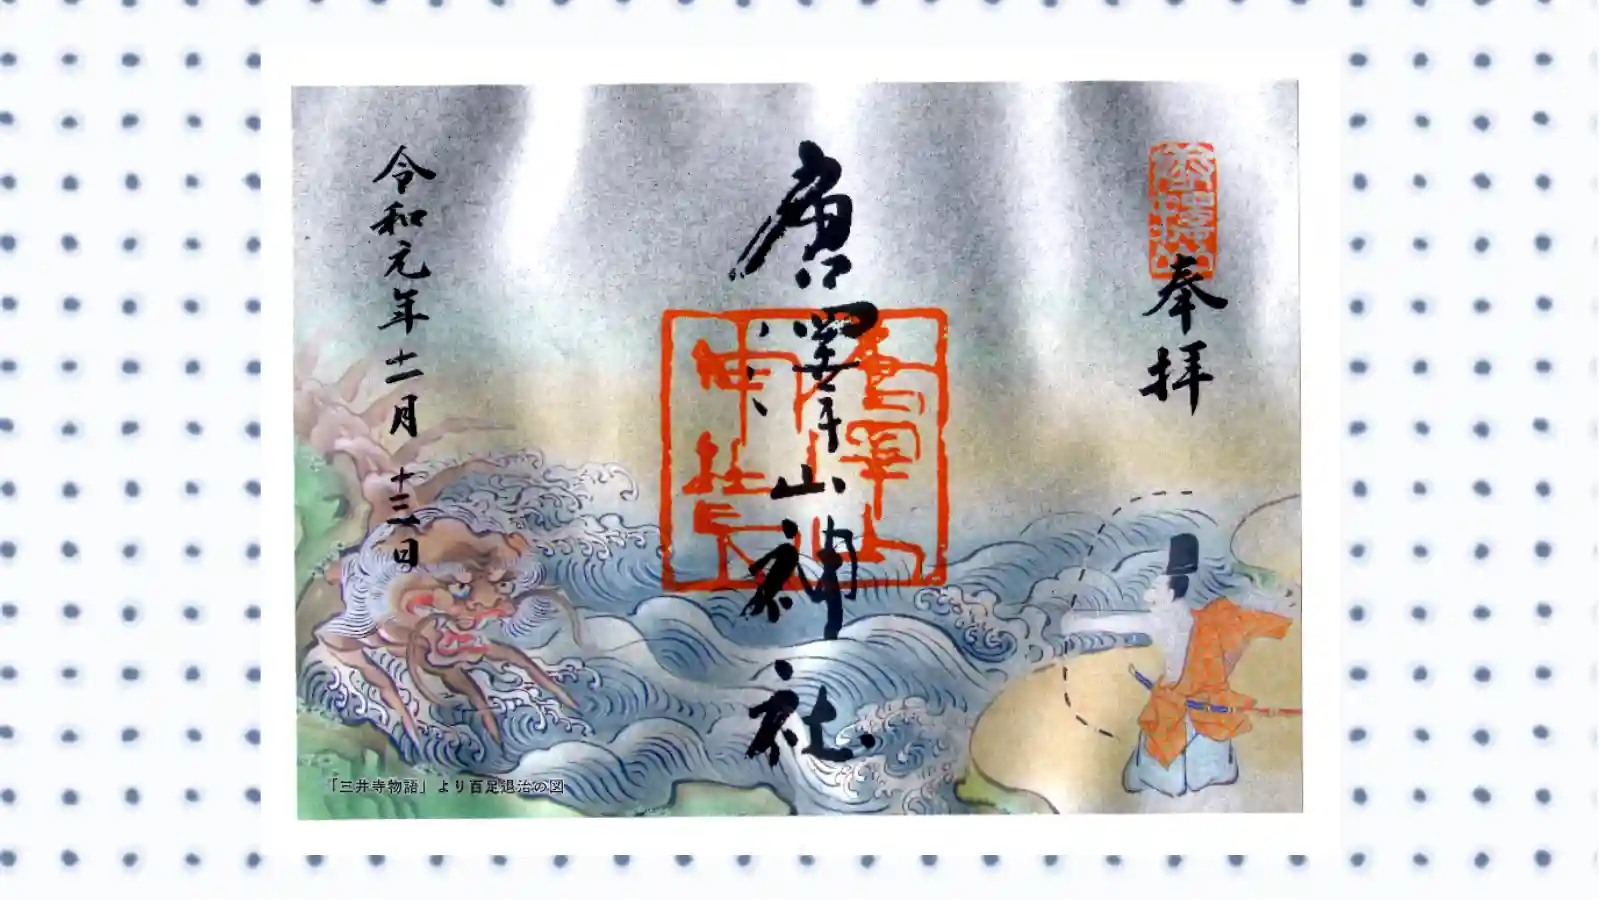 奉拝
唐澤山神社
令和元年十一月十三日
「三井寺物語」より百足退治の図